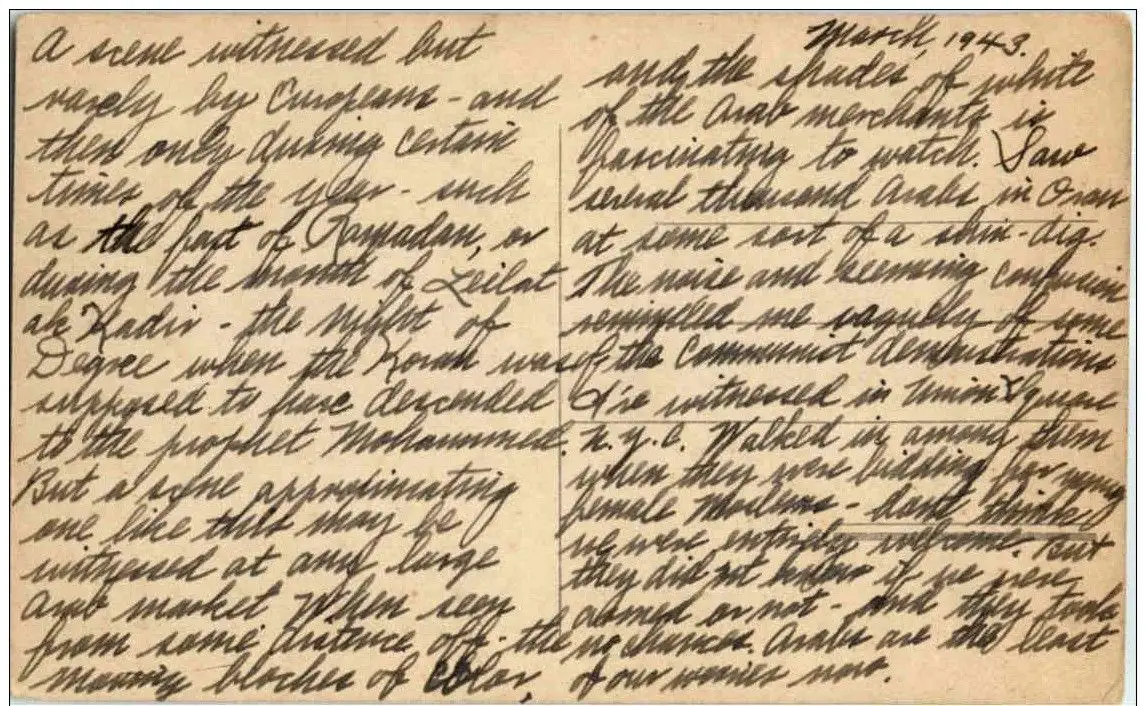 March, 1943.
A scene witnessed but
rarely by Europeans - and
then only during certain
times of the year - such
as the fast of Ramadan, or
during the month of Leilat
al Kadir - the night of
Degree when the Koran was
supposed to have descended
to the prophet Mohammed.
But a scene approximating
one like this may be
witnessed at any large
Arab market when seen
from some distance off - the
moving blotches of color,
and the shades of white
of the Arab merchants is
fascinating to watch. Saw
several thousand Arabs in Oran
at some sort of a shin-dig.
The noise and seeming confusion
reminded me vaguely of some
of the Communist demonstrations
I've witnessed in Union Square
N.Y.C. Walked in among them
when they were bidding for young
female Moslems - don't think
we were entirely welcome. But
they did not know if we were
armed or not - and they took
no chances. Arabs are the least
of our worries now.